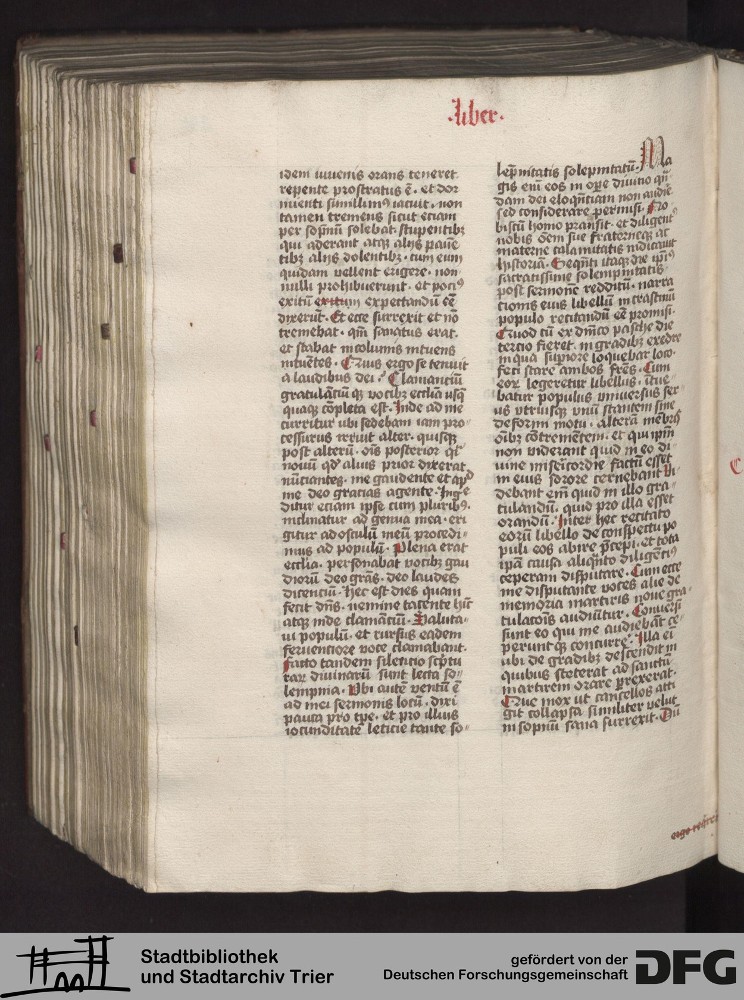 .liber.
idem iuuenis orans teneret
repente prostratus ē. et dor
mienti simillimꝰ iacuit. non
tamen tremens sicut etiam
per sopnū solebat stupentibꝫ
qui aderant atqꝫ alijs pauē
tibꝫ alijs dolentibꝫ. cum eum
quidam vellent erigere. non
nulli prohibuerunt. et pociꝰ
exitū exitum expectandū eē
dixerūt. Et ecce surrexit et nō
tremebat. qm̄ sanatus erat.
et stabat incolumis intuens
intuētes. Quis ergo se tenuit
a laudibus dei. Clamanciū
gratulāciū qꝫ vocibꝫ ecclīa usqꝫ
quaqꝫ cōpleta est. Inde ad me
curritur ubi sedebam iam pro
cessurus irruit alter. quisqꝫ
post alterū. oīs posterior qī
nouū qd̄ alius prior dixerat
nūciantes. me gaudente et apd̄
me deo gracias agente. Ingre
ditur eciam ipse cum pluribꝰ.
inclinatur ad genua mea. eri
gitur ad osculū meū procedi
mus ad populū. Plena erat
ecclīa. personabat vocibꝫ gau
diorū deo grās. deo laudes
dicenciū. hec est dies quam
fecit dn̄s. nemine tacente hīc
atqꝫ inde clamanciū. Saluta
ui populū. et rursus eadem
feruenciore voce clamabant.
Facto tandem silencio scp̄tu
rarꝝ diuinarū sunt lecta so
lempnia. Vbi autē ventū ē
ad mei sermonis locū. dixi
pauca pro tpe. et pro illius
iocunditate leticie tante so
lēpnitatis solēpnitatū. Ma
gis em̄ eos in oꝑe diuino qn̄
dam dei eloqn̄ciam non audire
sed considerare permisi. No
biscū homo pransit. et diligentꝰ
nobis oēm sue fraterneqꝫ ac
materne calamitatis indicauit
hystoriā. Seqn̄ti itaqꝫ die ip̄iꝰ
sacratissime solempnitatis
post sermonē redditū. narra
cionis eius libellū in crastinū
populo recitandū eē promisi.
Quod cū ex dn̄ico pasche die
tercio fieret. in gradibꝫ exedre
in qua superiore loquebar loco.
feci stare ambos frēs. Cum
eorꝫ legeretur libellus. itue
batur populus vniuersus sex
us vtriusqꝫ vnū stantem sine
deformi motu. alterā mēbrꝭ
oībꝫ cōtremētem. et qui ipm̄
non viderant quid in eo di
uine misericordie factū esset
in eius sorore cernebant. Vi
debant em̄ quid in illo gra
tulandū. quid pro illa esset
orandū. Inter hec recitato
eorū libello de conspectu po
puli eos abire p̄cepi. et tota
ip̄am causā aliqn̄to diligenciꝰ
ceperam disputare. Cum ecce
me disputante voces alie de
memoria martiris noue gra
tulacōis audiūtur. Conuersi
sunt eo qui me audiebāt ce
perunt qꝫ concurre. Illa ei
ubi de gradibꝫ descendit in
quibus steterat ad sanctū
martirem orare ꝑrexerat.
Que mox ut cancellos atti
git collapsa similiter velut
in sopnū sana surrexit. Dū
ergo req̄rere
Stadtbibliothek
und Stadtarchiv Trier
gefördert von der
Deutschen Forschungsgemeinschaft
DFG